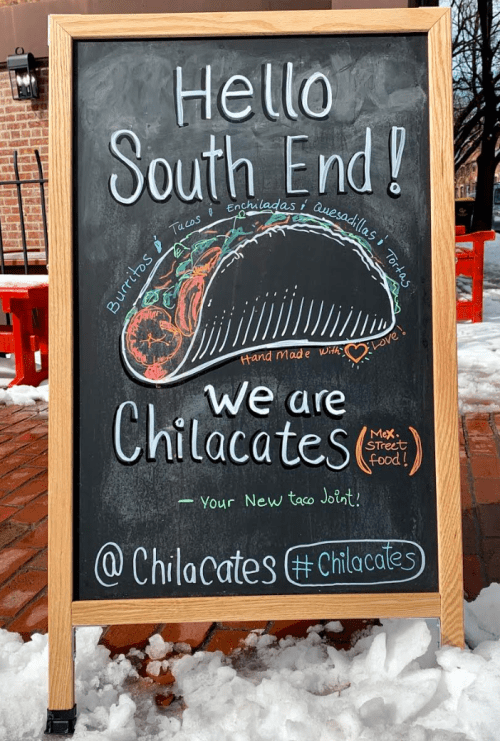 Hello
South End!
Burritos ! Tacos ! Enchiladas ! Quesadillas ! Tortas
Hand Made with Love!
We are
Chilacates
(Mex.
Street
food!)
— Your New taco Joint!
@Chilacates #Chilacates